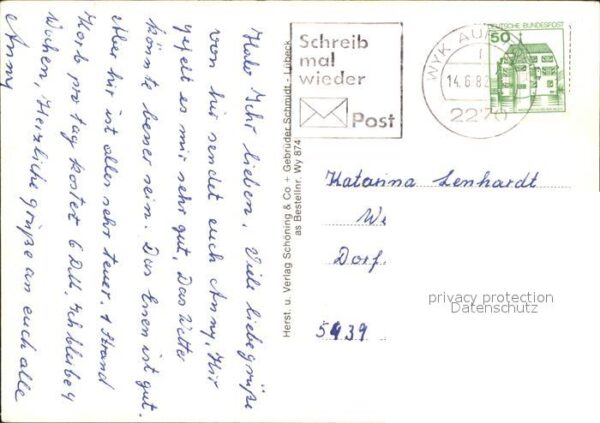 Halo Ihr lieben. Viele liebe grüße
von hir sendet euch Anny, Hir
gefelt es mir sehr gut. Das Wetter
könnte besser sein. Das Essen ist gut.
Aber hir ist alles sehr teuer. 1 Strand
Korb pro tag kostet 6 DM, Ich bleibe 4
Wochen, Herzliche grüße an euch alle
Anny
Herst. u. Verlag Schöning & Co + Gebrüder Schmidt - Lübeck
as Bestellnr. Wy 874
Schreib
mal
wieder
Post
WYK AUF
14.6.82
2270
DEUTSCHE BUNDESPOST
50
Katarina Lenhardt
We
Dorf.
5439
privacy protection
Datenschutz